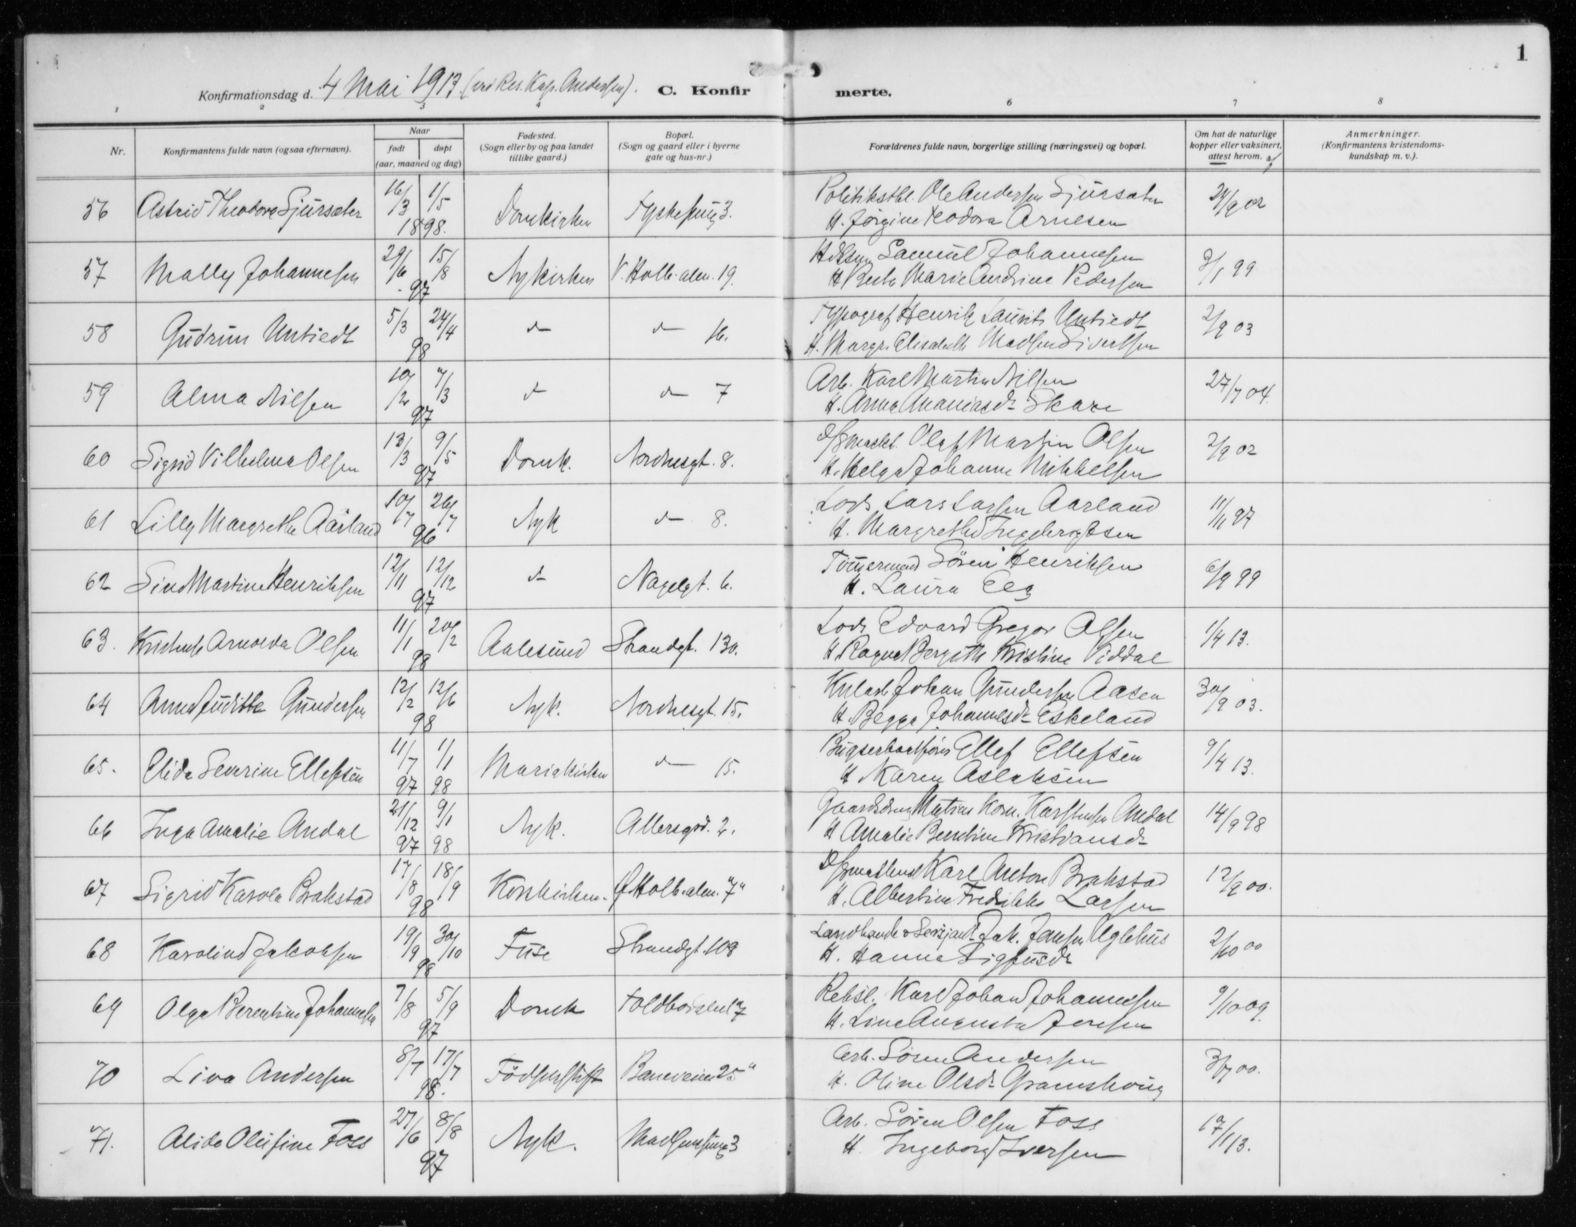 1
Konfirmationsdag d. 4 Mai 1913 (ved Res. Kap. Andersen). C. Konfirmerte.
1 2 3 4 5 6 7 8
Nr. Konfirmantens fulde navn (ogsaa efternavn). Naar født døpt (aar, maaned og dag) Fødested. (Sogn eller by og paa landet tillike gaard.) Bopæl. (Sogn og gaard eller i byerne gate og hus-nr.) Forældrenes fulde navn, borgerlige stilling (næringsvei) og bopæl. Om hat de naturlige kopper eller vaksinert, attest herom. Anmerkninger. (Konfirmantens kristendomskundskap m. v.).
56 Astrid Theodora Sjursæter 16/3 1/5 1898. Domkirken 3. Ole Andersen Sjursæter 24/9 02
H. Jørgine Teodora Arnesen
57 Mally Johannesen 29/6 15/8 97 Nykirken V. Holb. alm. 19. Samuel Johannesen 3/1 99
H. Marie Andrine Pedersen
58 Gudrun Untiedt 5/3 24/4 98 d- d- 16. Typograf Henrik Laurits Untiedt 2/9 03
H. Margr. Elisabeth Madsen Sivertsen
59 Alma Nilsen 10/2 7/3 97 d- d- 7 Arb. Karl Martin Nilsen 27/7 04
H. Anna Skare
60 Sigrid Vilhelmine Olsen 13/3 9/5 97 Domk. Nordnesgt. 8. Olaf Martin Olsen 2/9 02
H. Helga Johanne Mikkelsen
61 Lilly Margrethe Aarland 10/7 26/7 96 Nyk d- 8. Lods Lars Larsen Aarland 11/11 97
H. Margrethe Ingebrigtsen
62 Martine Henriksen 12/11 12/12 97 d- Nagelgt. 6. Tømermand Søren Henriksen 6/9 99
H. Laura Eeg
63. Arnolda Olsen 11/1 20/2 98 Aalesund Strandgt. 130. Lods Edvard Gregor Olsen 1/4 13.
H. Ragna Bergitte Kristine Viddal
64 Anna Juditte Gundersen 12/2 12/6 98 Nyk. Nordnesgt. 15. Johan Gundersen Aasen 30/9 03.
H. Johannesd- Eskeland
65. Elida Severine Ellefsen 11/7 97 1/1 98 Mariakirken d- 15. Ellef Ellefsen 9/4 13.
H. Karen Aslaksen
66 Inga Amalie Andal 21/12 97 9/1 98 Nyk. 2. Andal 14/9 98
H. Amalie Berntine Kristiansd-
67 Sigrid Karola Brakstad 17/8 18/9 98 Korskirken. Ø. Holb. alm. "7" Karl Anton Brakstad 12/9 00.
H. Albertine Fredrikke Larsen
68 Karoline Jakobsen 19/9 30/10 98 Fuse Strandgt 108 Jak. Jansen 2/10 00
H. Hanna Sigfusd-
69 Olga Berentine Johannesen 7/8 5/9 97 Domk 17 Rebsl. Karl Johan Johannesen 9/10 09.
H. Line Augusta Jensen
70 Liva Andersen 8/7 17/7 98. Fødselsstift. Baneveien 25" Arb. Søren Andersen 3/7 00.
H. Oline Olsd-
71. Alida Olufine Foss 27/6 8/8 97 Nyk. 3 Arb. Søren Olsen Foss 17/1 13.
H. Ingeborg Iversen